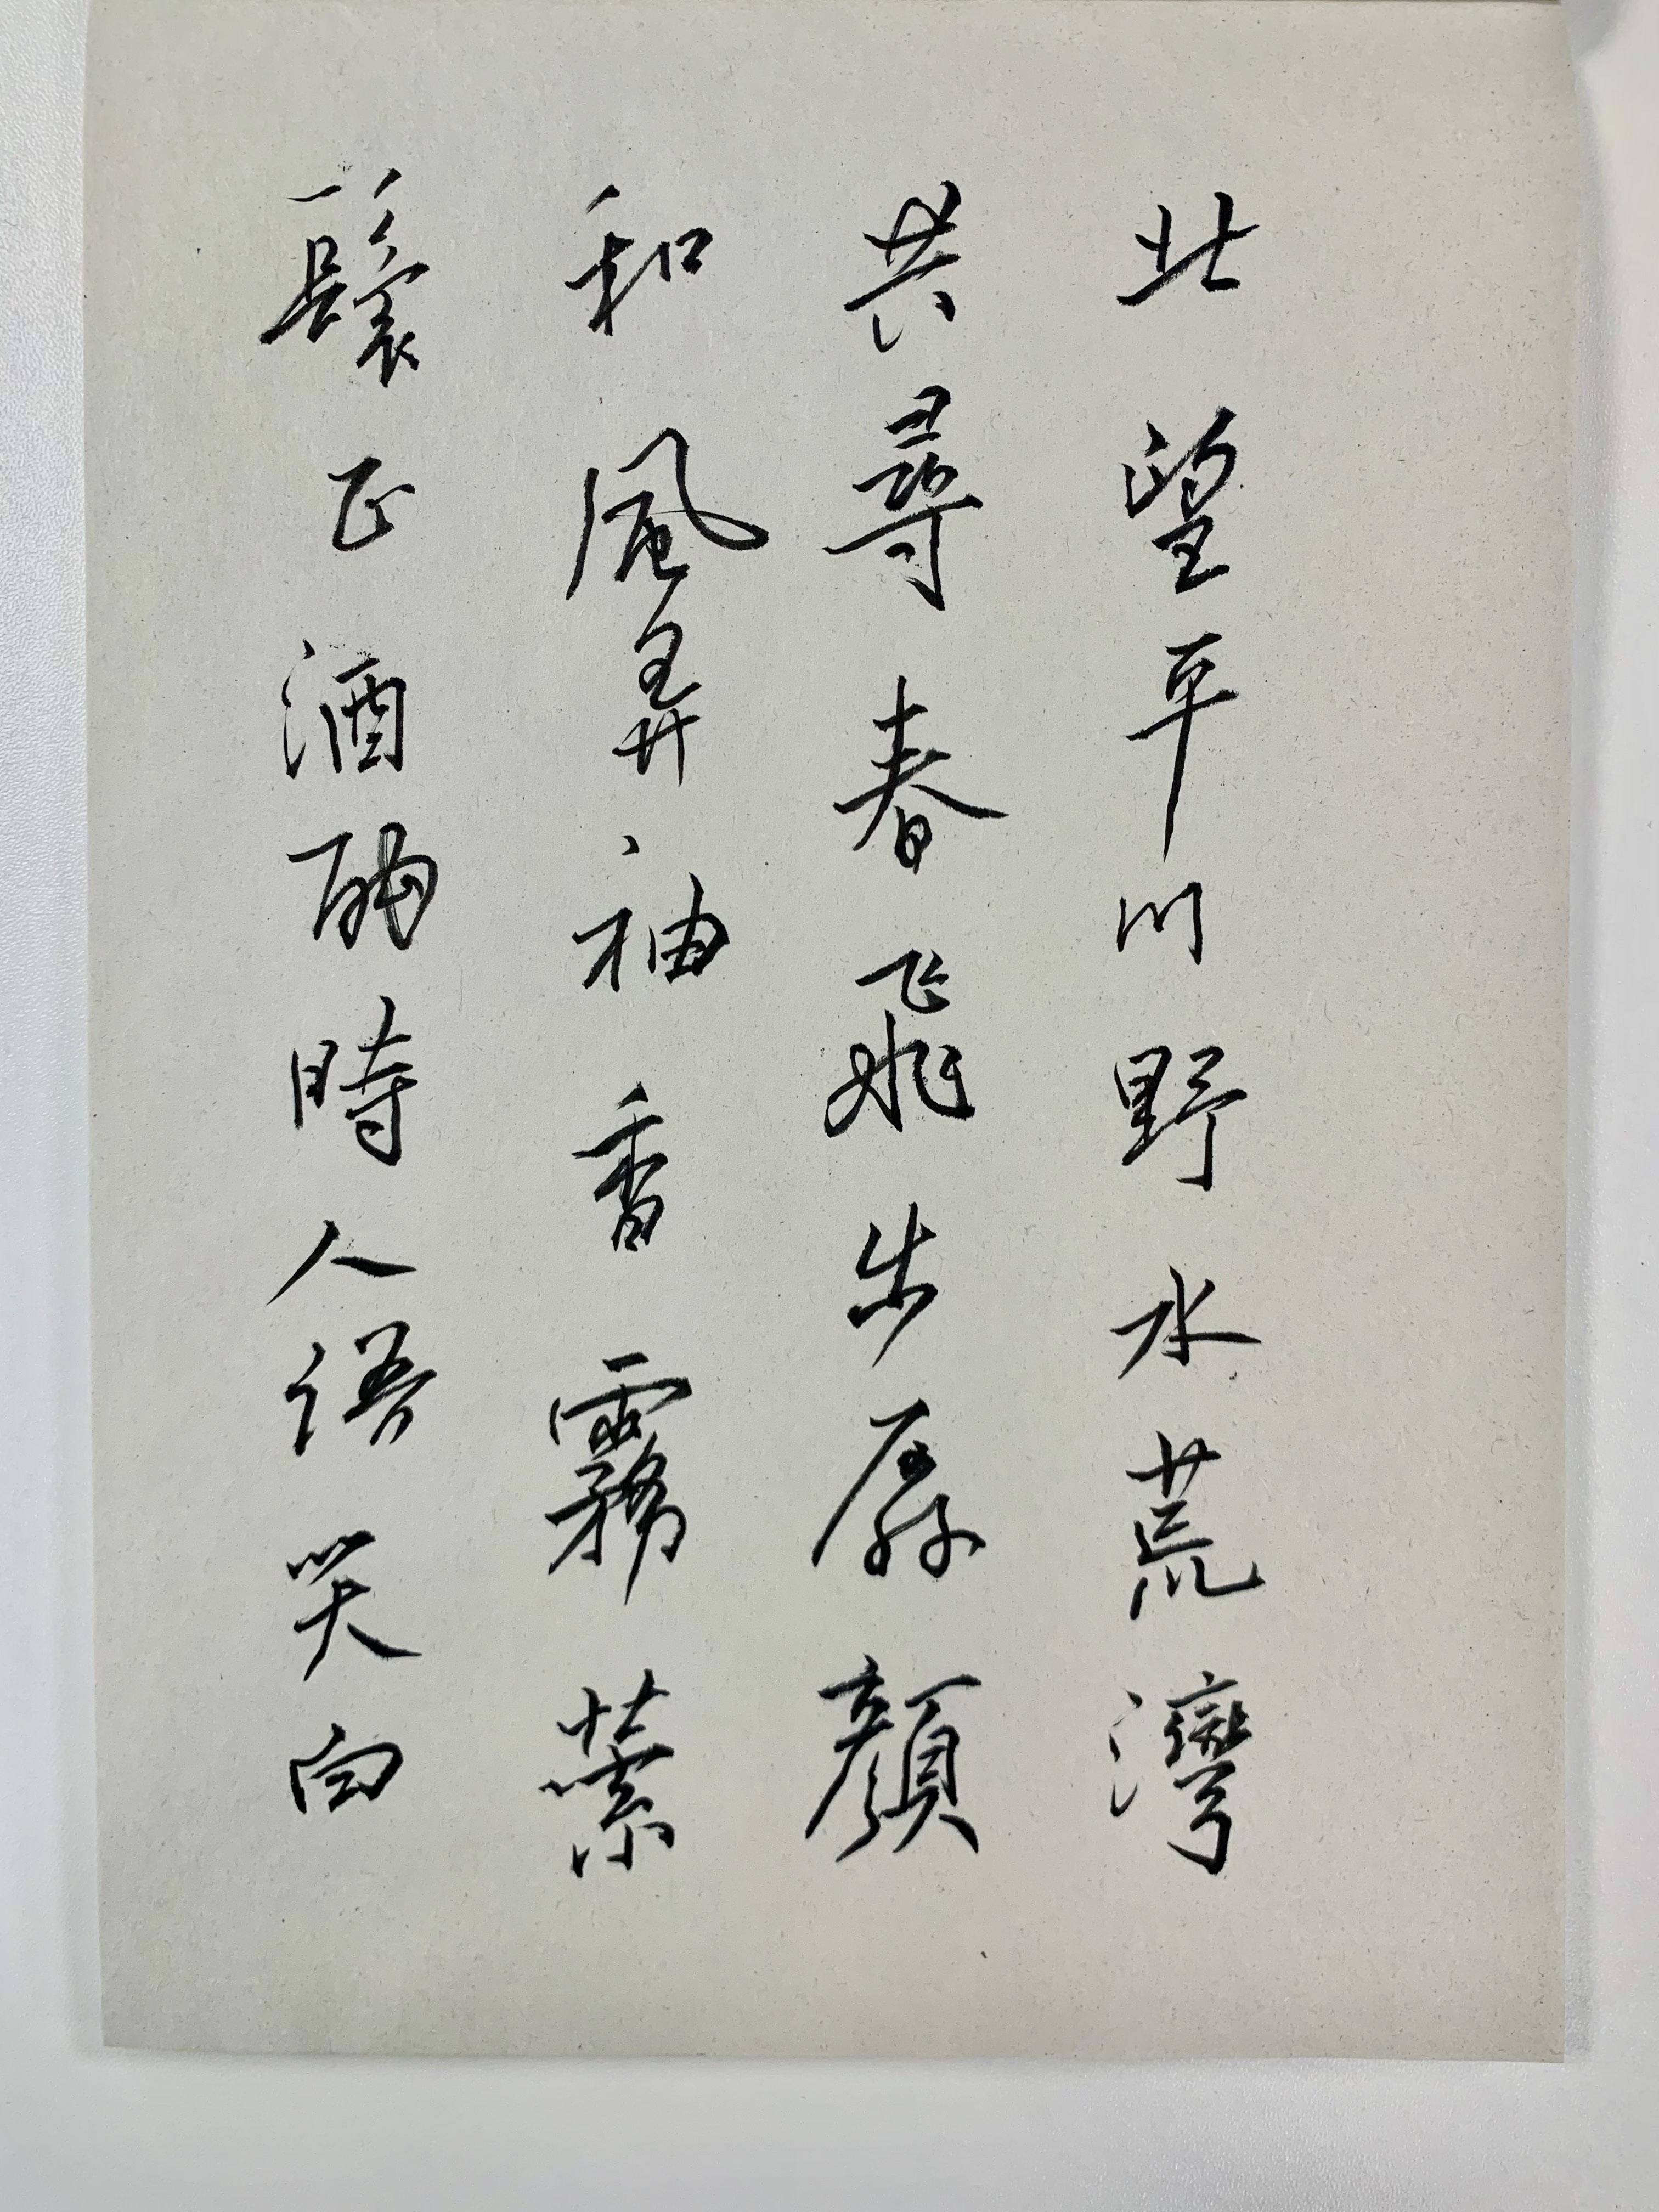 北望平川野水荒灣
共尋春飛步孱顏
和風弄袖香霧縈
鬟正酒酣時人語笑白